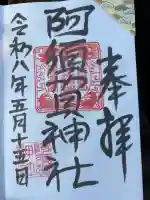 奉拝
阿須賀神社
令和八年五月十五日